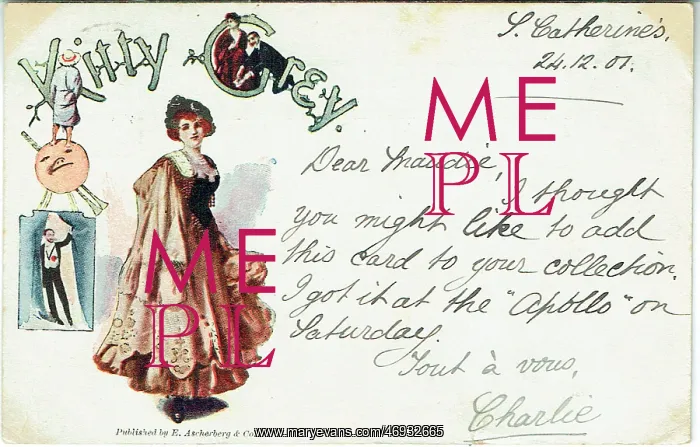 Kitty Grey.
S. Catherine's,
24.12.01.
Dear Maudie,
I thought
you might like to add
this card to your collection.
I got it at the "Apollo" on
Saturday.
Tout à vous,
Charlie
ME
PL
ME
PL
Published by E. Ascherberg & Co
www.maryevans.com/46932665